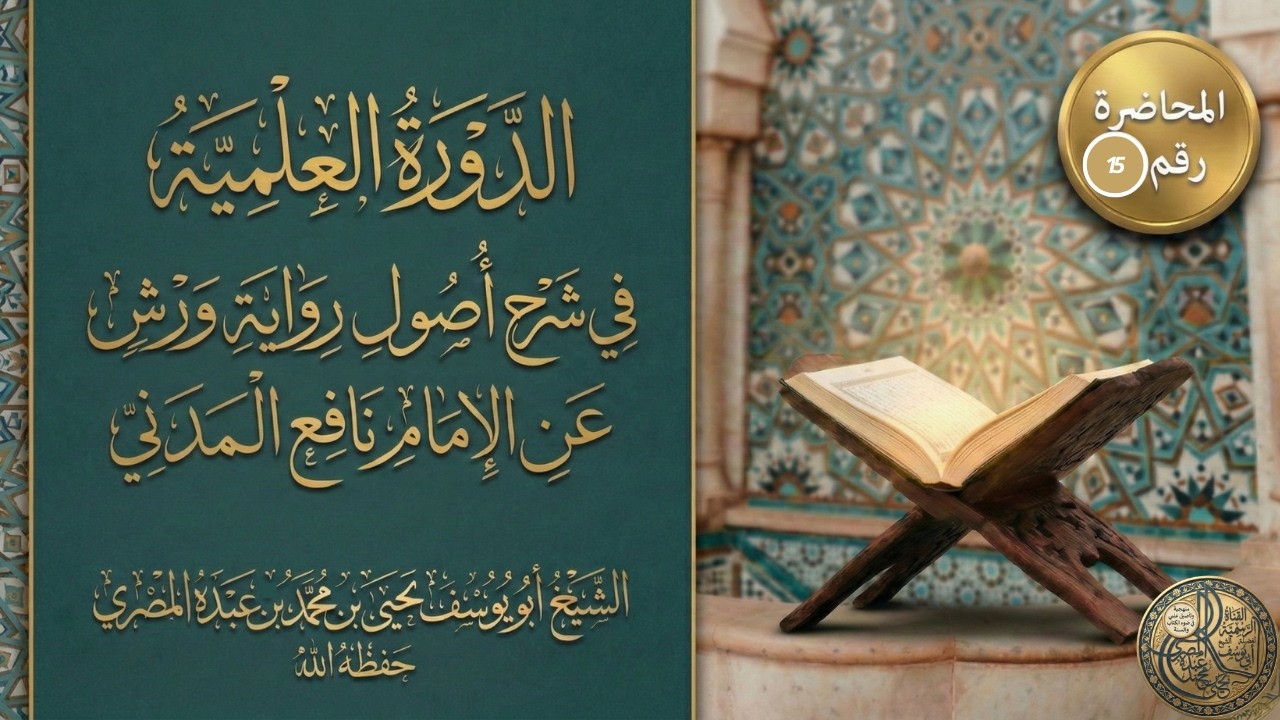 الدَّوْرَةُ العِلْمِيَّةُ
فِي شَرْحِ أُصُولِ رِوَايَةِ وَرْشٍ
عَنِ الإِمَامِ نَافِعٍ الْمَدَنِيِّ
الشَّيْخُ أَبُو يُوسُفَ يَحْيَى بن مُحَمَّد بن عَبْدَهُ المَصْرِي
حَفِظَهُ اللهُ
المحاضرة
رقم 15
القناة
الرسمية